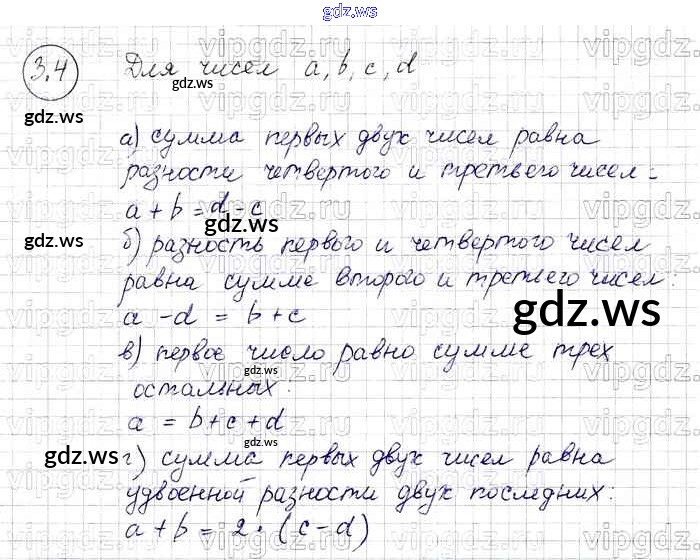 gdz.ws
3.4 Для чисел a, b, c, d
gdz.ws
gdz.ws
а) сумма первых двух чисел равна
разности четвертого и третьего чисел:
a + b = d - c
gdz.ws
gdz.ws
б) разность первого и четвертого чисел
равна сумме второго и третьего чисел:
a - d = b + c
gdz.ws
в) первое число равно сумме трех
gdz.ws
остальных:
a = b + c + d
gdz.ws
gdz.ws
г) сумма первых двух чисел равна
удвоенной разности двух последних:
a + b = 2 · (c - d)
gdz.ws
vipgdz.ru